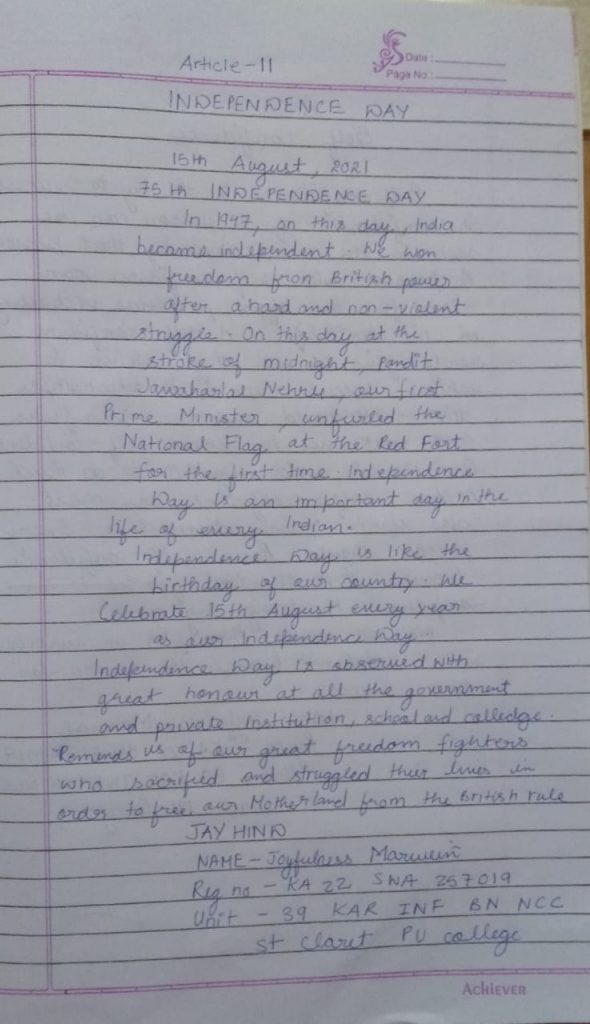 Article-11
Date :
Page No.:
INDEPENDENCE DAY
15th August, 2021
75th INDEPENDENCE DAY
In 1947, on this day, India
became independent. We won
freedom fron British power
after a hard and non-violent
struggle. On this day at the
stroke of midnight, Pandit
Jawaharlal Nehru, our first
Prime Minister, unfurled the
National Flag at the Red Fort
for the first time. Independence
Day is an important day in the
life of every Indian.
Independence Day is like the
birthday of our country. We
Celebrate 15th August every year
as our Independence Day.
Independence Day is observed with
great honour at all the government
and private Institution, school and colledge.
Reminds us of our great freedom fighters
who sacrified and struggled their lives in
order to free our Motherland from the British rule
JAY HIND
NAME - Joyfulness Marwein
Reg no - KA 22 SWA 257019
Unit - 39 KAR INF BN NCC
St Claret PU college
ACHIEVER